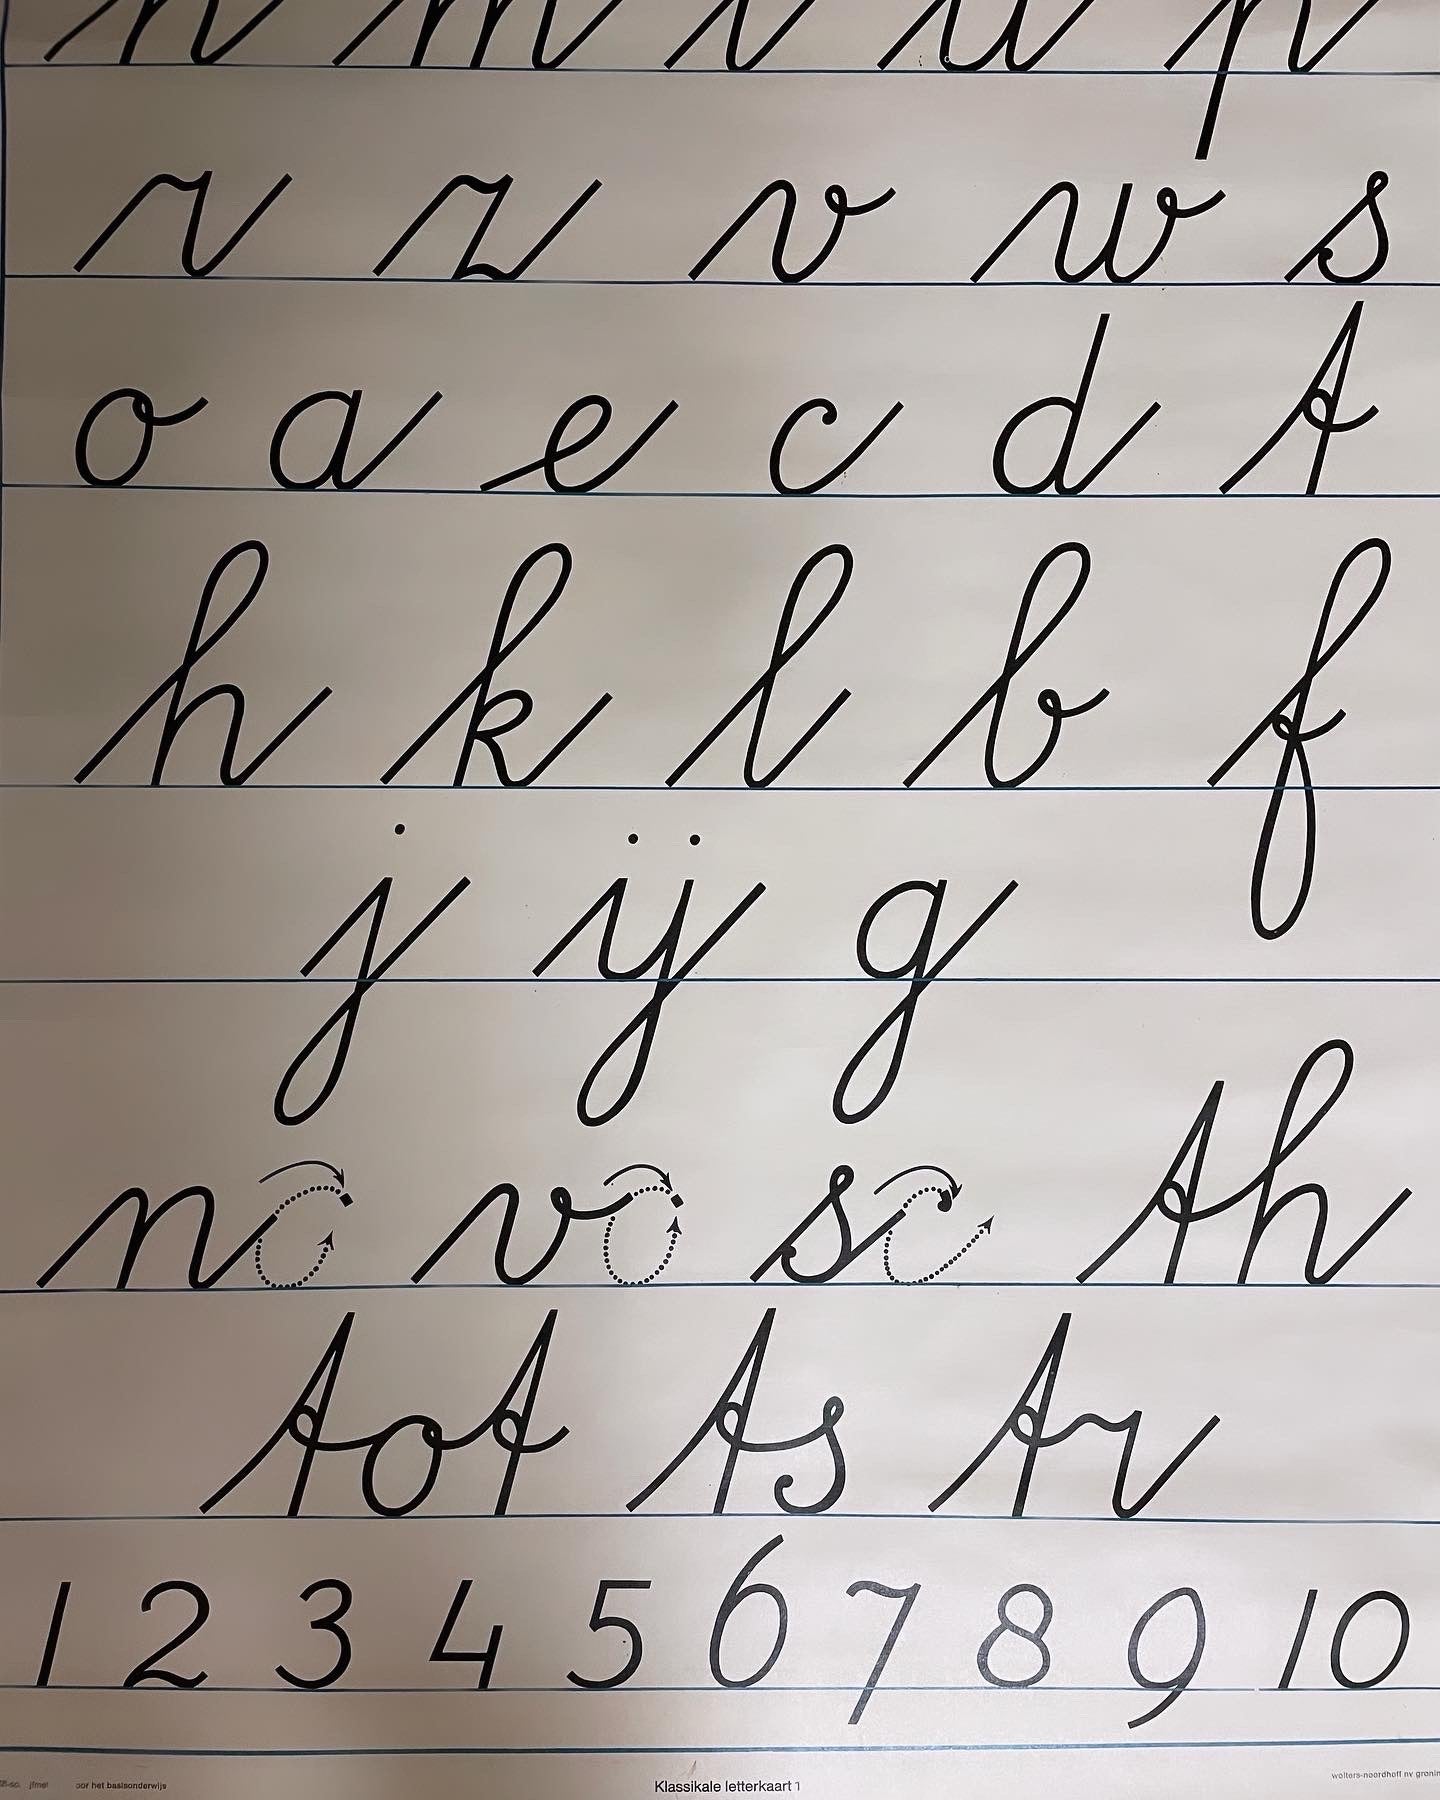 n m i u p
r z v w s
o a e c d t
h k l b f
j ij g
no vo sc th
tot ts tr
1 2 3 4 5 6 7 8 9 10
oor het basisonderwijs Klassikale letterkaart 1 wolters-noordhoff nv gronin